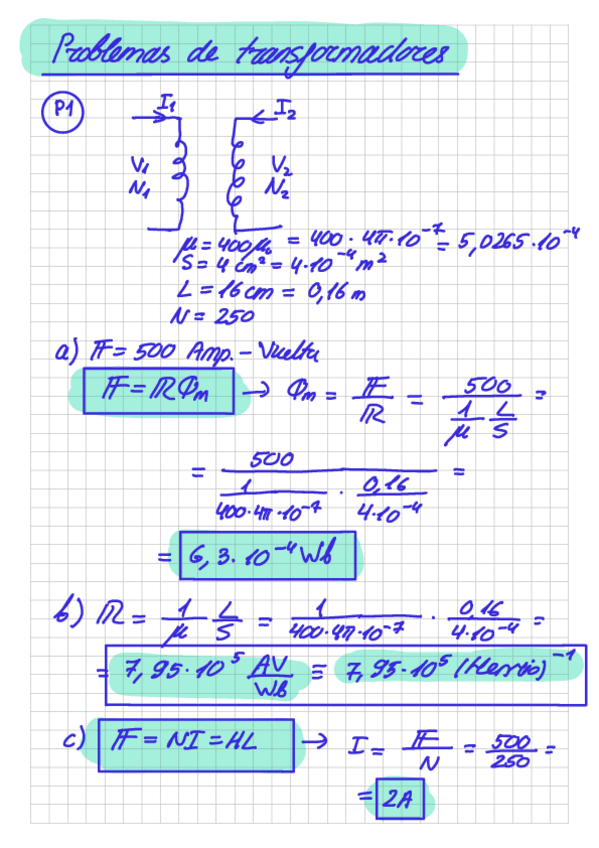 Problemas de transformadores
P1
I₁ I₂
V₁ V₂
N₁ N₂
μ = 400μ₀ = 400 · 4π · 10⁻⁷ = 5,0265 · 10⁻⁴
S = 4 cm² = 4 · 10⁻⁴ m²
L = 16 cm = 0,16 m
N = 250
a) F = 500 Amp. - Vuelta
F = RΦm → Φm = F/R = 500/(1/μ L/S) =
= 500/(1/(400·4π·10⁻⁷) · 0,16/(4·10⁻⁴)) =
= 6,3 · 10⁻⁴ Wb
b) R = 1/μ L/S = 1/(400·4π·10⁻⁷) · 0,16/(4·10⁻⁴) =
= 7,95 · 10⁵ AV/Wb ≡ 7,95 · 10⁵ (Henrio)⁻¹
c) F = NI = HL → I = F/N = 500/250 =
= 2A